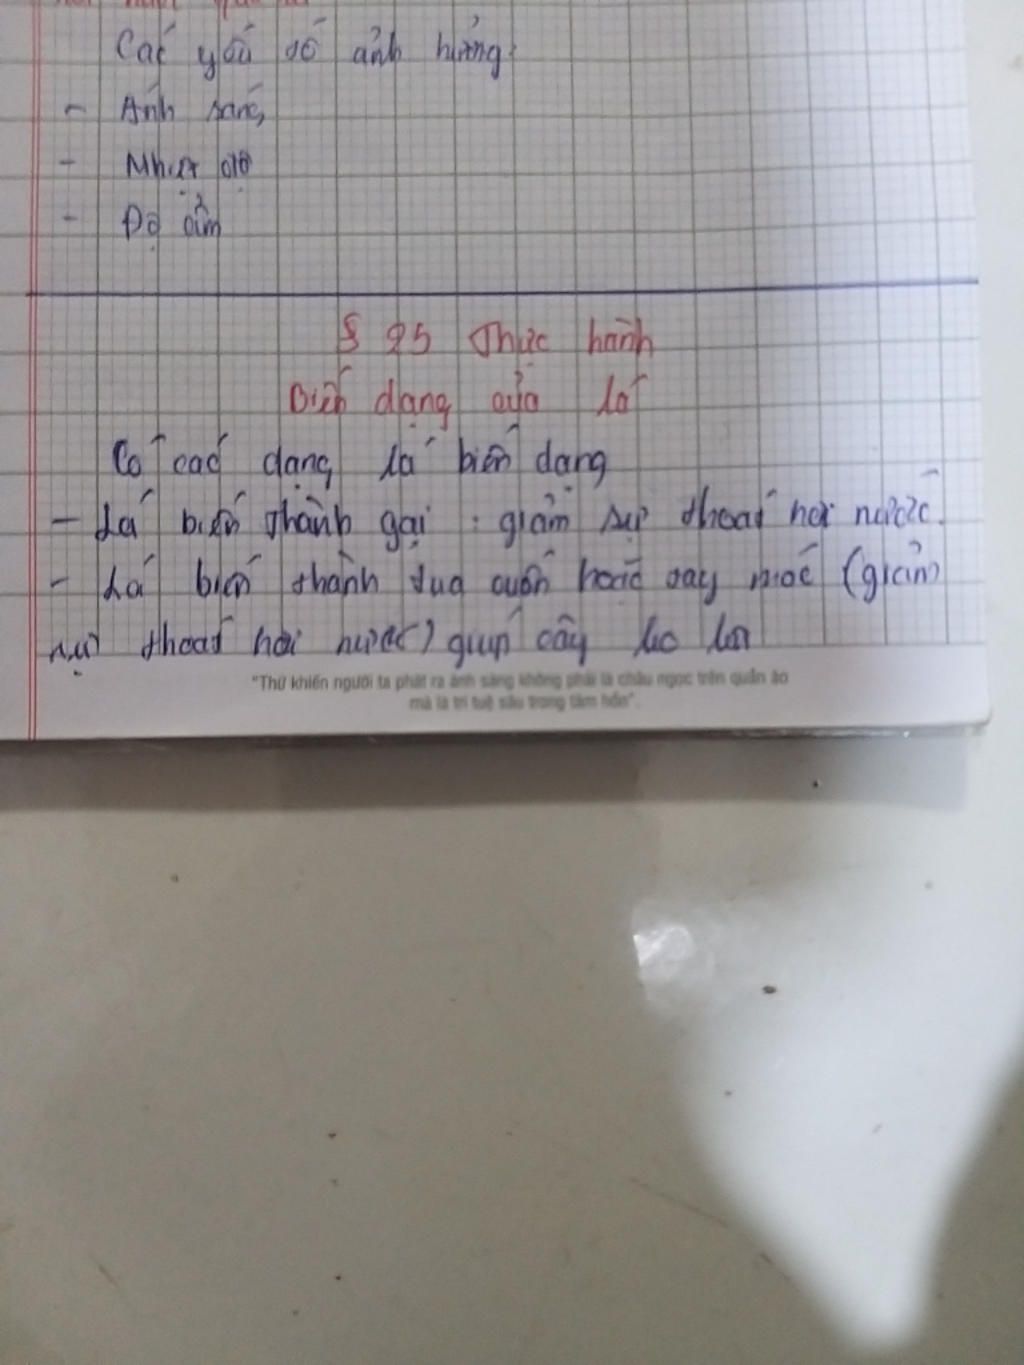 Các yếu tố ảnh hưởng:
- Ánh sáng
- Nhiệt độ
- Độ ẩm
§ 25 Thực hành
Biến dạng của lá
Có các dạng lá biến dạng
- Lá biến thành gai : giảm sự thoát hơi nước.
- Lá biến thành tua cuốn hoặc tay móc (giảm
sự thoát hơi nước) giúp cây leo lên
"Thứ khiến người ta phát ra ánh sáng không phải là châu ngọc trên quần áo
mà là trí tuệ sâu trong tâm hồn".